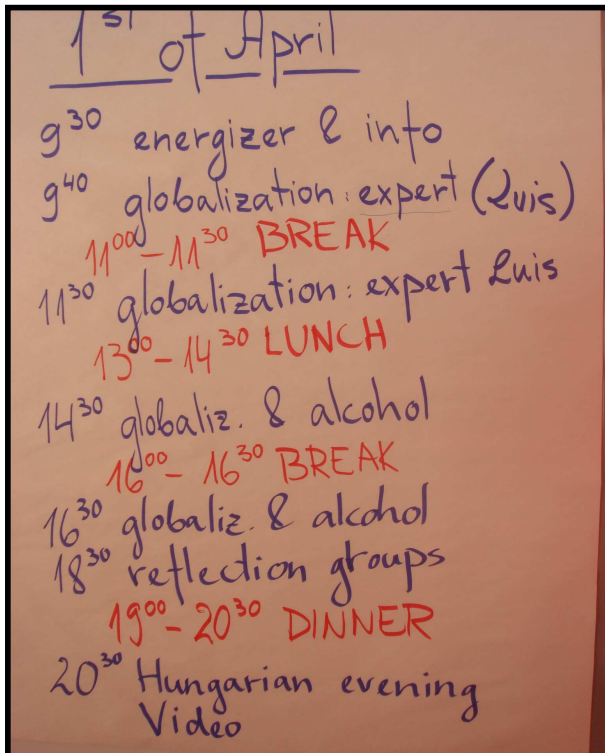 1st of April
9³⁰ energizer & info
9⁴⁰ globalization: expert (Luis)
11⁰⁰ - 11³⁰ BREAK
11³⁰ globalization: expert Luis
13⁰⁰ - 14³⁰ LUNCH
14³⁰ globaliz. & alcohol
16⁰⁰ - 16³⁰ BREAK
16³⁰ globaliz. & alcohol
18³⁰ reflection groups
19⁰⁰ - 20³⁰ DINNER
20³⁰ Hungarian evening
Video